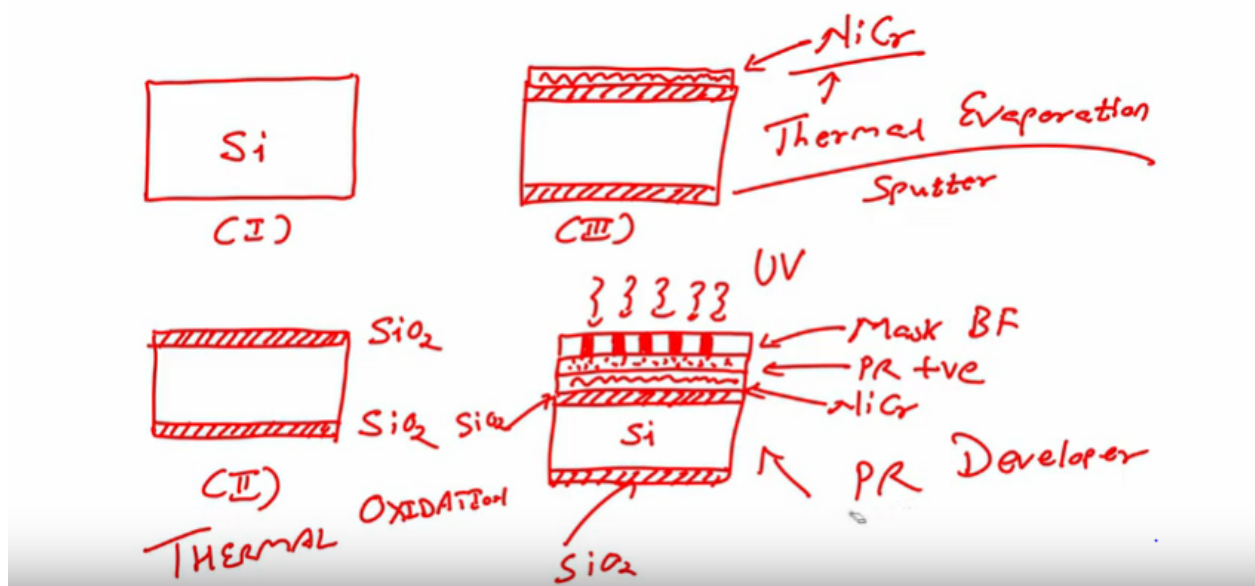 Si
(I)
NiCr
Thermal Evaporation
Sputter
(III)
SiO2
SiO2
(II)
THERMAL OXIDATION
UV
Mask BF
PR +ve
NiCr
SiO2
Si
PR Developer
SiO2